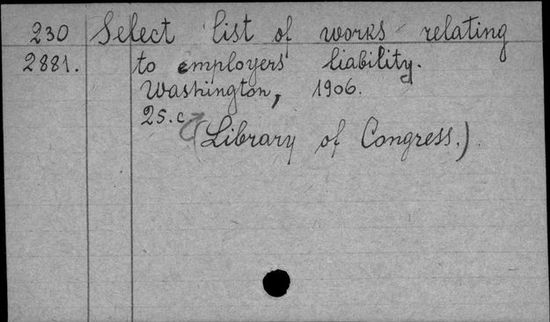 230 Select list of works relating
2881. to employers' liability.
Washington, 1906.
25.c
(Library of Congress.)